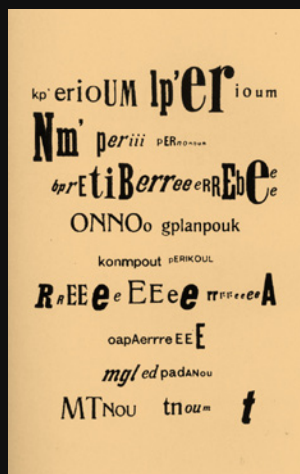 kp' erioUM lp'er ioum
Nm' periii pERnoкuм
bprEtiBerreeeRREbeee
ONNOo gplanpouk
konmpout pERIKOUL
RrEEeeEEeerrreeeeA
oapAerrreEEE
mgl ed padANou
MTNou tnoum t